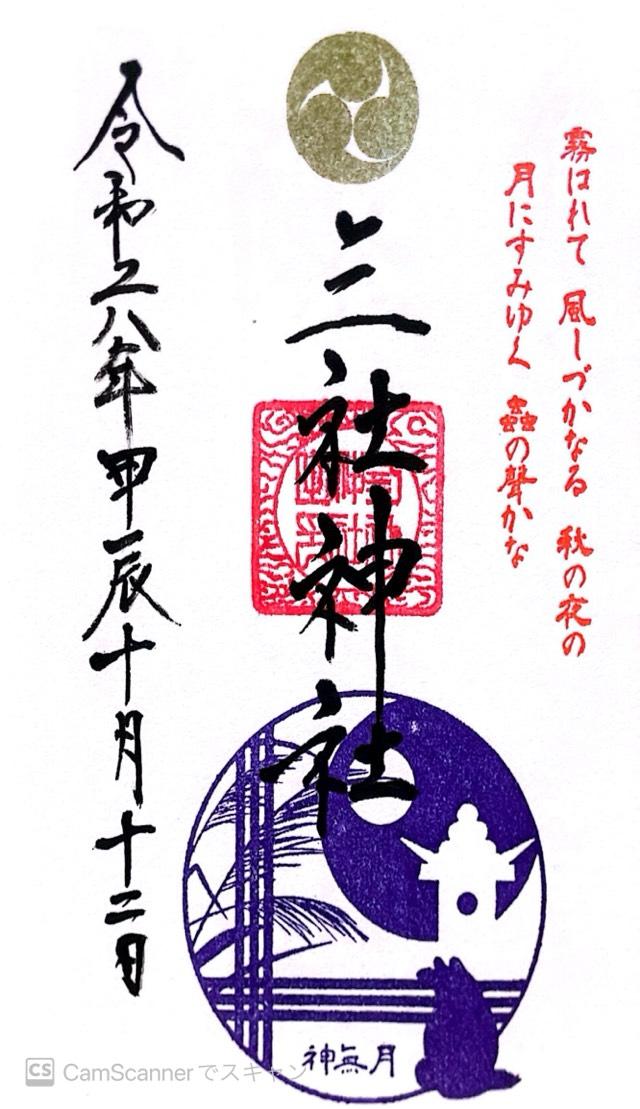 霧はれて 風しづかなる 秋の夜の
月にすみゆく 蟲の聲かな
三社神社
令和六年甲辰十月十二日
神無月
CS CamScanner でスキャン